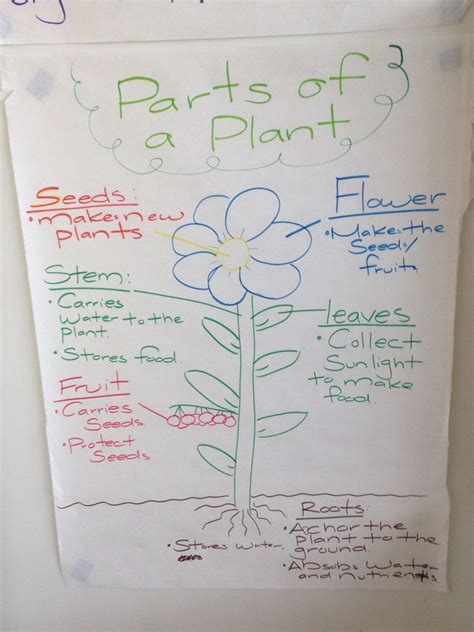 Parts of
a Plant
Seeds:
• Make new
plants
Flower
• Make the
Seeds/
fruit
Stem:
• Carries
Water to the
plant.
• Stores food.
leaves
• Collect
Sunlight
to make
food.
Fruit
• Carries
Seeds
• Protect
Seeds
Roots:
• Anchor the
plant to the
ground.
• Absorbs water
and nutrients
• Stores water.